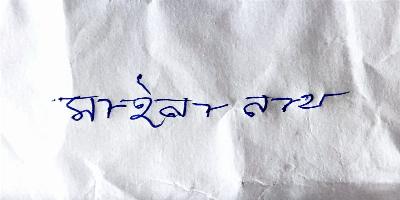 সাইনা নাথ